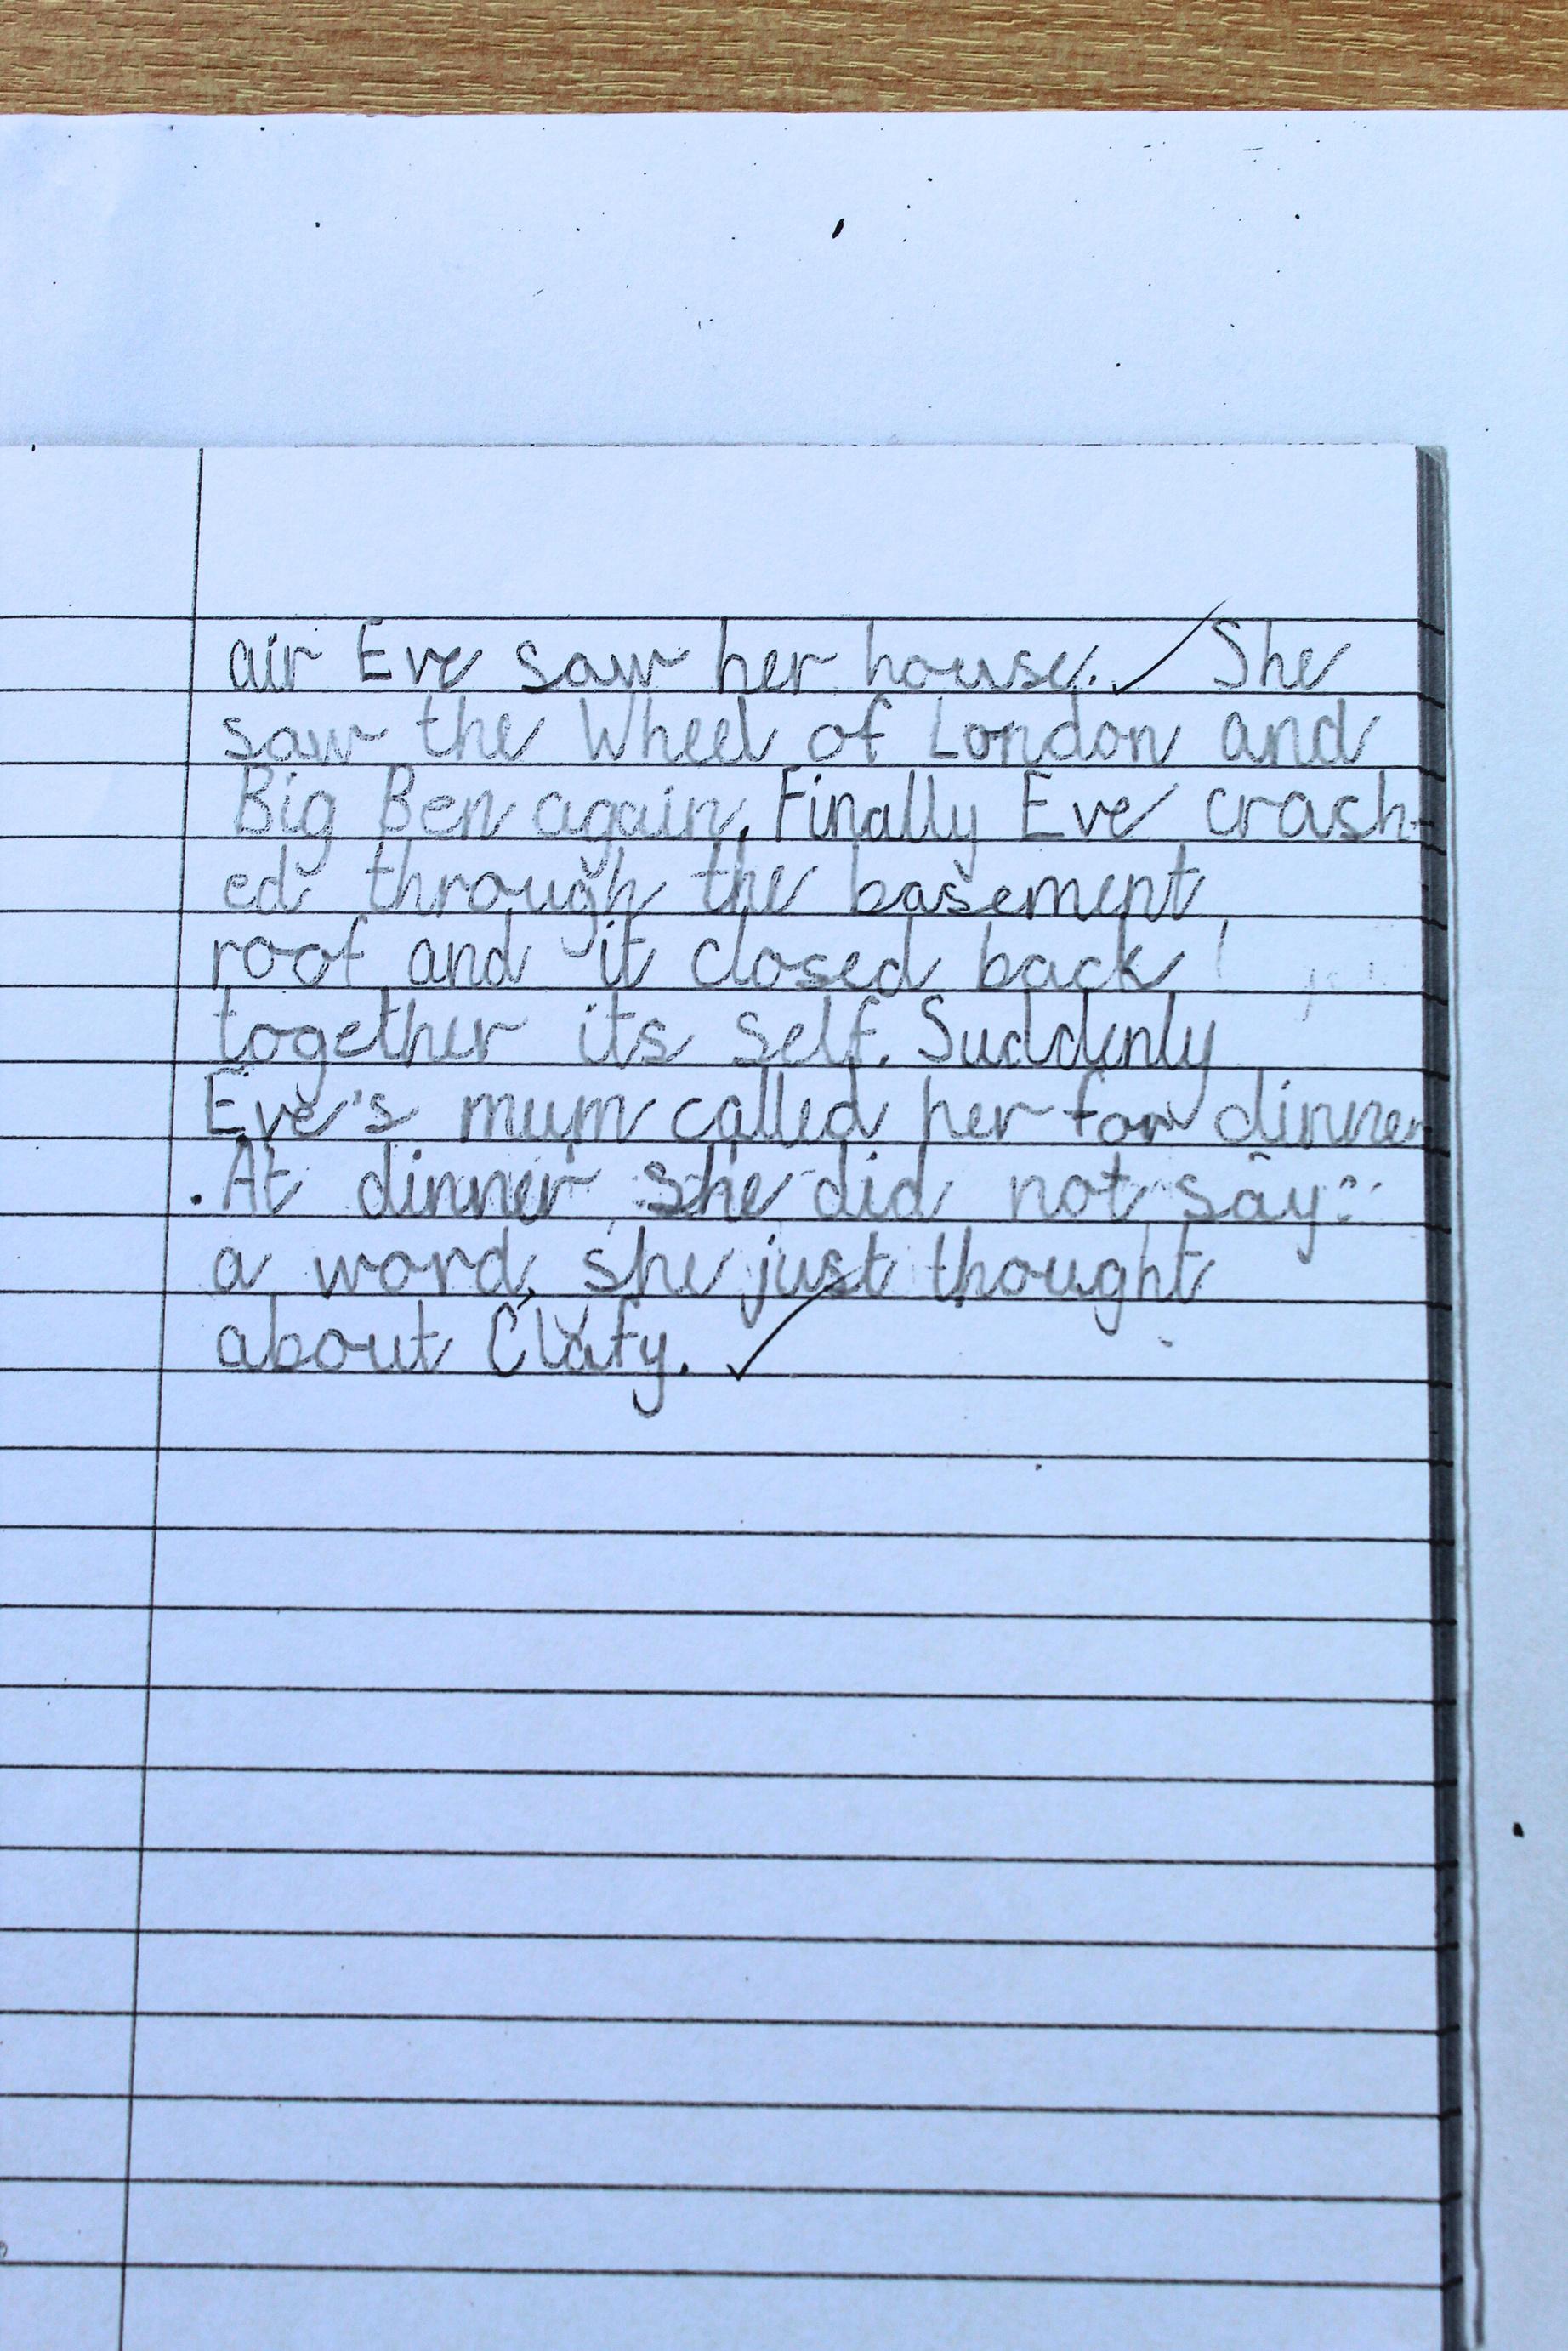 air Eve saw her house. She
saw the Wheel of London and
Big Ben again. Finally Eve crash-
ed through the basement
roof and it closed back
together its self. Suddenly
Eve's mum called her for dinner
. At dinner she did not say
a word, she just thought
about Clafy.